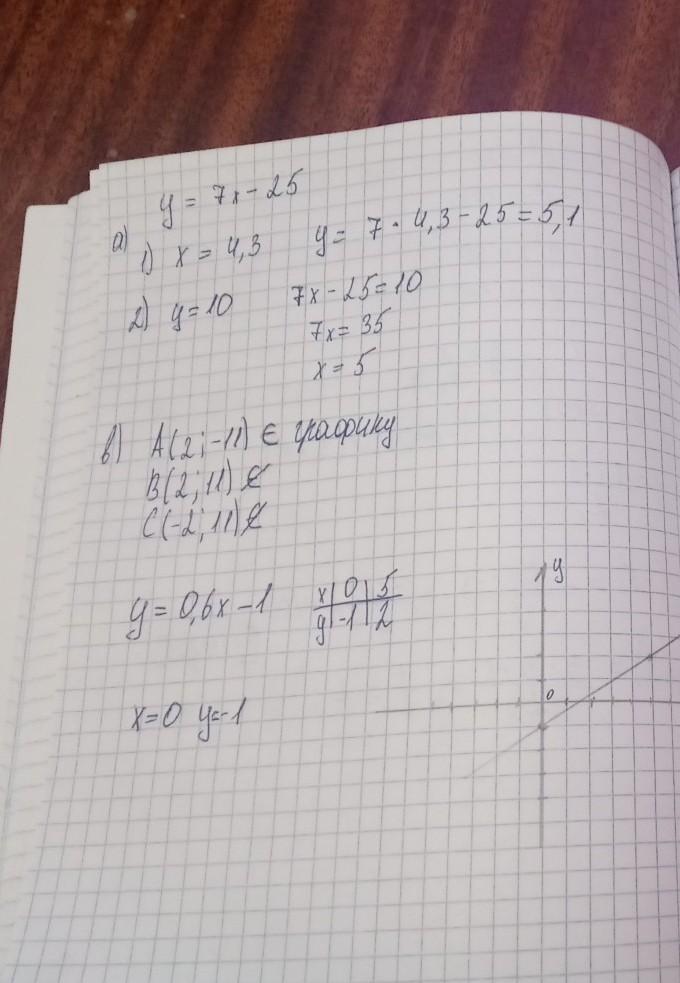 y = 7x - 25
а) 1) x = 4,3 y = 7 · 4,3 - 25 = 5,1
2) y = 10 7x - 25 = 10
7x = 35
x = 5
в) A(2; -11) ∈ графику
B(2; 11) ∉
C(-2; 11) ∉
y = 0,6x - 1
x | 0 | 5
y | -1 | 2
y
0
x = 0 y = -1